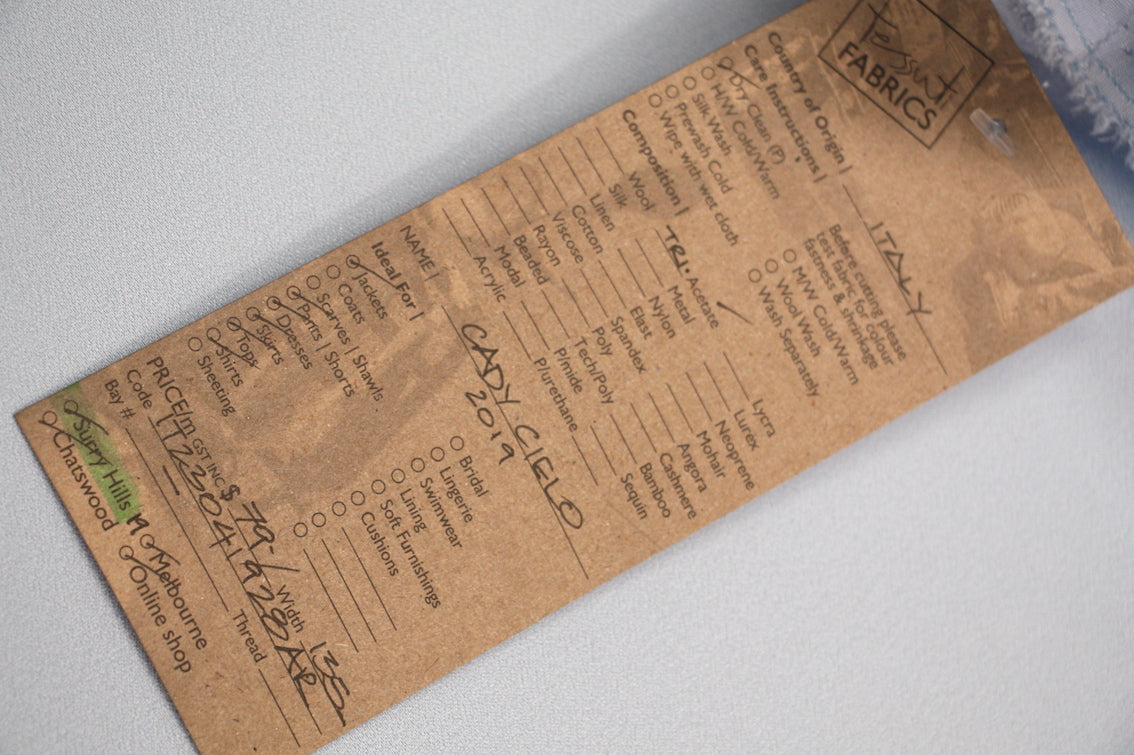 tessuti
FABRICS
Country of Origin | ITALY
Care Instructions |
Dry Clean (P)
H/W Cold/Warm
Silk Wash
Prewash Cold
Wipe with wet cloth
Before cutting please
test fabric for colour
fastness & shrinkage
M/W Cold/Warm
Wool Wash
Wash Separately
Composition |
Wool
Silk
Linen
Cotton
Viscose
Rayon
Beaded
Modal
Acrylic
TRI. Acetate
Metal
Nylon
Elast
Spandex
Poly
Tech/Poly
P/mide
P/urethane
Lycra
Lurex
Neoprene
Mohair
Angora
Cashmere
Bamboo
Sequin
NAME | CADY CIELO
2019
Ideal For |
Jackets
Coats
Scarves | Shawls
Pants | Shorts
Dresses
Skirts
Tops
Shirts
Sheeting
Bridal
Lingerie
Swimwear
Lining
Soft Furnishings
Cushions
PRICE/m GST INC $ 79.- / Width 135
Code
Bay #
Thread
Surry Hills M Melbourne
Chatswood Online shop